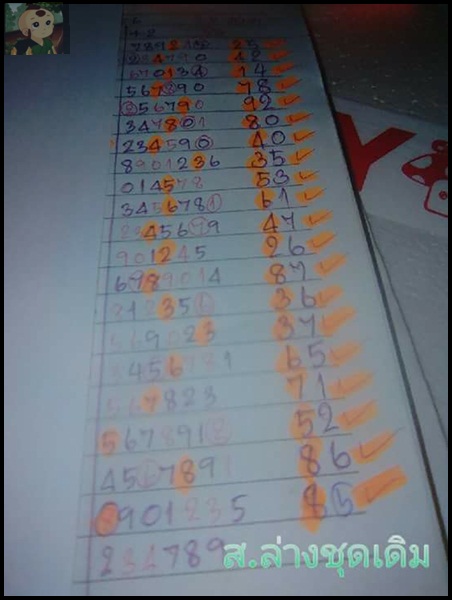 42
7892 25
234790 42
670134 14
567890 78
256790 92
347801 80
234590 40
8901236 35
014578 53
3456781 61
2345679 47
901245 26
6789014 87
812351 36
569023 37
3456781 65
567823 71
5678912 52
4567891 86
8901235 85
234789
Y
ส.ล่างชุดเดิม